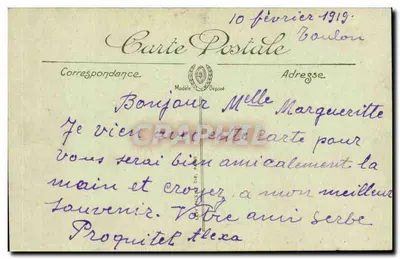 10 février 1919.
Toulon
Carte Postale
Correspondance
Adresse
Modèle Déposé
Bonjour Melle Margueritte
Je vien sur cette carte pour
vous serai bien amicalement la
main et croyez a mon meilleur
souvenir. Votre ami serbe
Proquitch Alexa